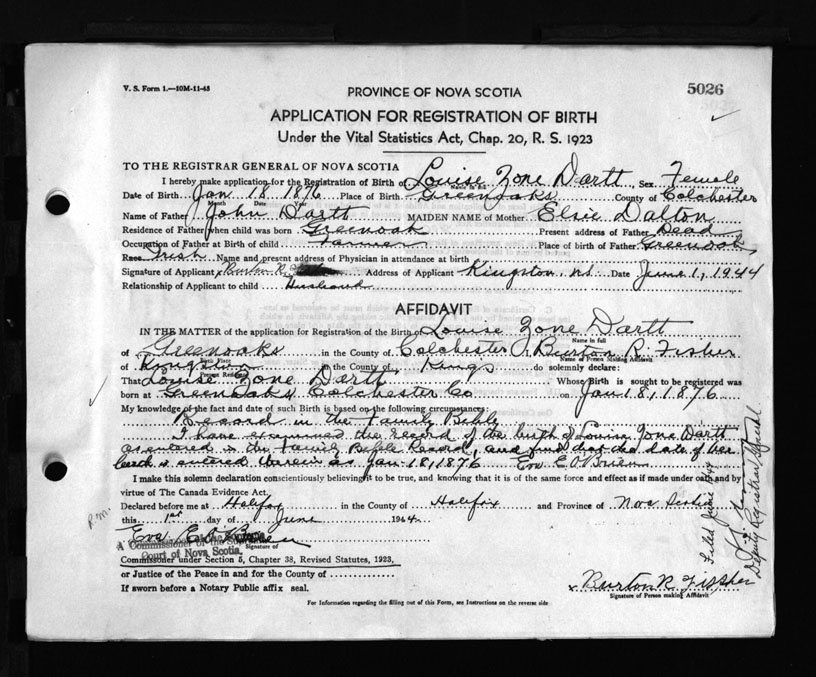 V. S. Form 1.—10M-11-43
PROVINCE OF NOVA SCOTIA
5026
APPLICATION FOR REGISTRATION OF BIRTH
Under the Vital Statistics Act, Chap. 20, R. S. 1923
TO THE REGISTRAR GENERAL OF NOVA SCOTIA
I hereby make application for the Registration of Birth of Louise Zone Dartt, Sex Female
Name in full
Date of Birth Jan 18 1876 Place of Birth Greenoaks County of Colchester
Month Date Year
Name of Father John Dartt MAIDEN NAME of Mother Elsie Dalton
Residence of Father when child was born Greenoak Present address of Father Dead
Occupation of Father at Birth of child Farmer Place of birth of Father Greenoak
Race Irish Name and present address of Physician in attendance at birth
Signature of Applicant Burton R. Address of Applicant Kingston, N.S. Date June 1, 1944
Relationship of Applicant to child Husband
AFFIDAVIT
IN THE MATTER of the application for Registration of the Birth of Louise Zone Dartt
Name in full
of Greenoaks in the County of Colchester, I, Burton R. Fisher
Birth Place Name of Person Making Affidavit
of Kingston in the County of Kings do solemnly declare:
Present Residence
That Louise Zone Dartt, Whose Birth is sought to be registered was
born at Greenoaks Colchester Co on Jan 18, 1876
My knowledge of the fact and date of such Birth is based on the following circumstances:
Record in the Family Bible
I have examined the record of the birth of Louise Zone Dartt
as entered in the Family Bible Record, and find that the date of her
birth is entered therein as Jan 18, 1876 Eva E O'Brien
I make this solemn declaration conscientiously believing it to be true, and knowing that it is of the same force and effect as if made under oath and by
virtue of The Canada Evidence Act.
Declared before me at Halifax in the County of Halifax and Province of Nova Scotia
this 1st day of June 1944
Eva E. O'Brien
A Commissioner of the Supreme
Court of Nova Scotia.
Signature of
Commissioner under Section 5, Chapter 38, Revised Statutes, 1923,
or Justice of the Peace in and for the County of
If sworn before a Notary Public affix seal.
x Burton R Fissher
Signature of Person making Affidavit
For Information regarding the filling out of this Form, see Instructions on the reverse side
Filed June 1/44
Deputy Registrar General